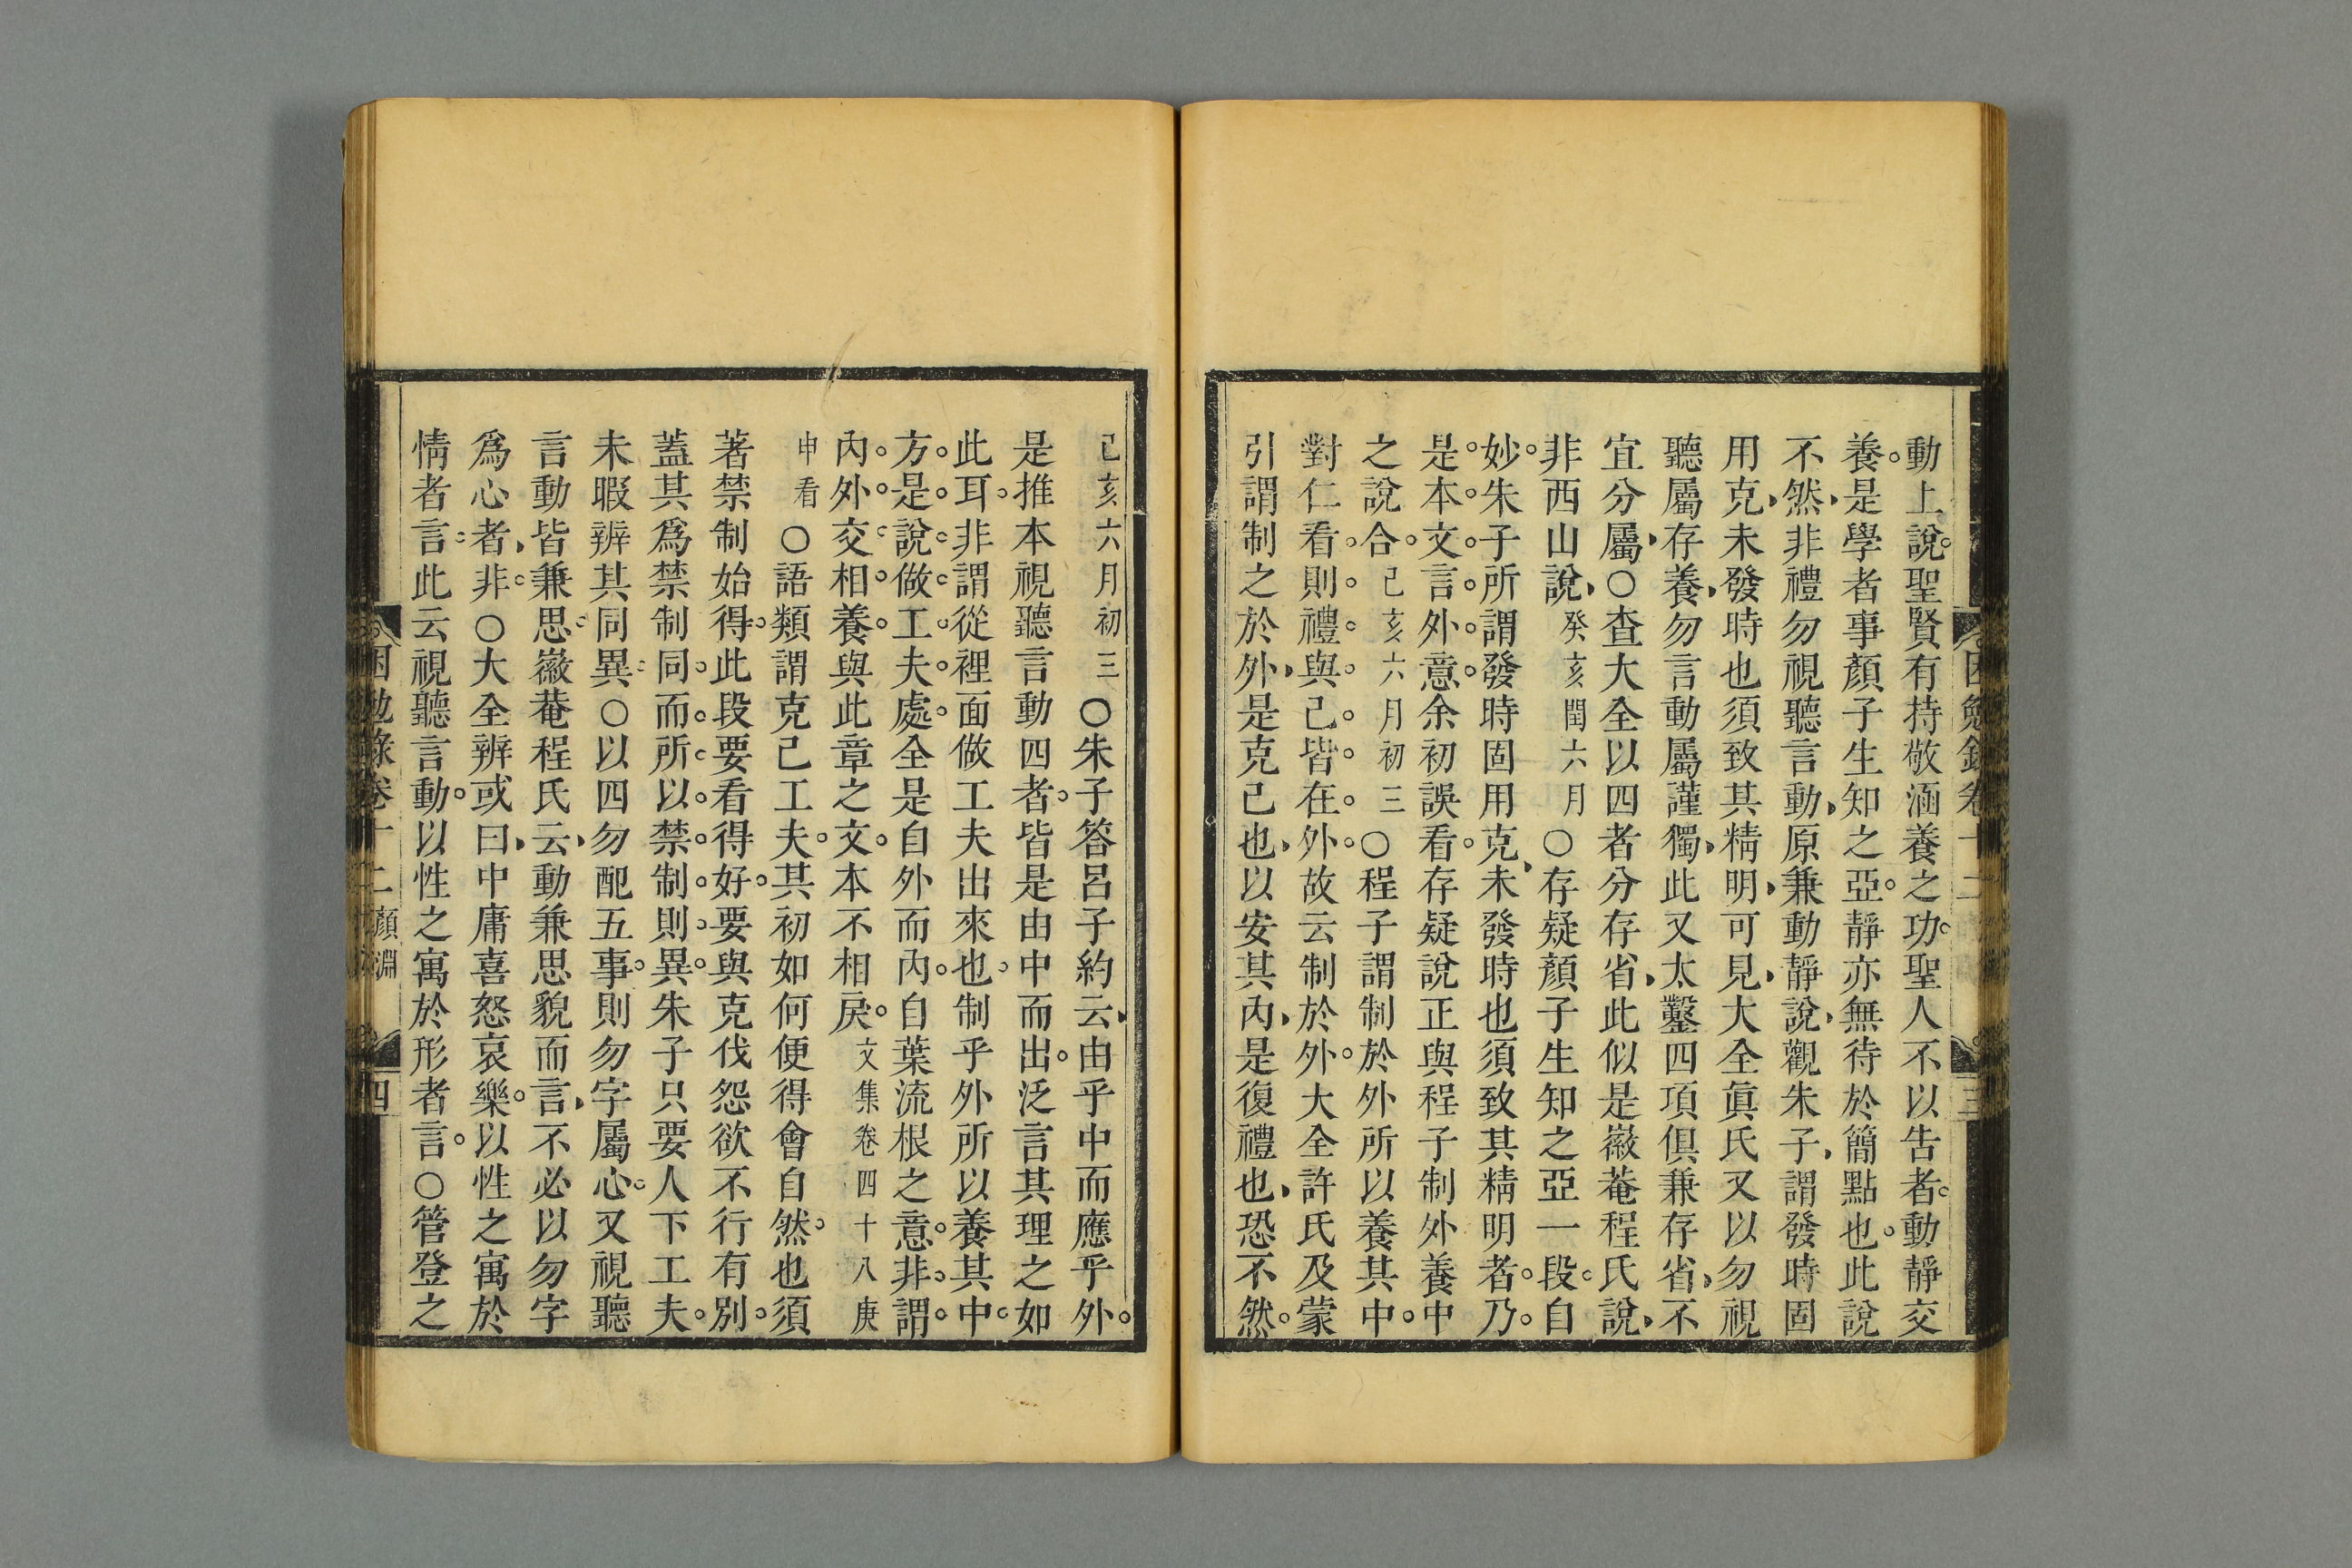 動上說聖賢有持敬涵養之功聖人不以告者動靜交
養是學者事顏子生知之亞靜亦無待於簡點也此說
不然非禮勿視聽言動原兼動靜說觀朱子謂發時固
用克未發時也須致其精明可見大全眞氏又以勿視
聽屬存養勿言動屬謹獨此又太鑿四項俱兼存省不
宜分屬○查大全以四者分存省此似是徽菴程氏說
非西山說癸亥閏六月○存疑顏子生知之亞一段自
妙朱子所謂發時固用克未發時也須致其精明者乃
是本文言外意余初誤看存疑說正與程子制外養中
之說合己亥六月初三○程子謂制於外所以養其中
對仁看則禮與己皆在外故云制於外大全許氏及蒙
引謂制之於外是克己也以安其內是復禮也恐不然
己亥六月初三○朱子答呂子約云由乎中而應乎外
是推本視聽言動四者皆是由中而出泛言其理之如
此耳非謂從裡面做工夫出來也制乎外所以養其中
方是說做工夫處全是自外而內自葉流根之意非謂
內外交相養與此章之文本不相戾文集卷四十八庚
申看○語類謂克己工夫其初如何便得會自然也須
著禁制始得此段要看得好要與克伐怨欲不行有別
蓋其爲禁制同而所以禁制則異朱子只要人下工夫
未暇辨其同異○以四勿配五事則勿字屬心又視聽
言動皆兼思徽菴程氏云動兼思貌而言不必以勿字
爲心者非○大全辨或曰中庸喜怒哀樂以性之寓於
情者言此云視聽言動以性之寓於形者言○管登之
困勉錄卷十二 顏淵 四